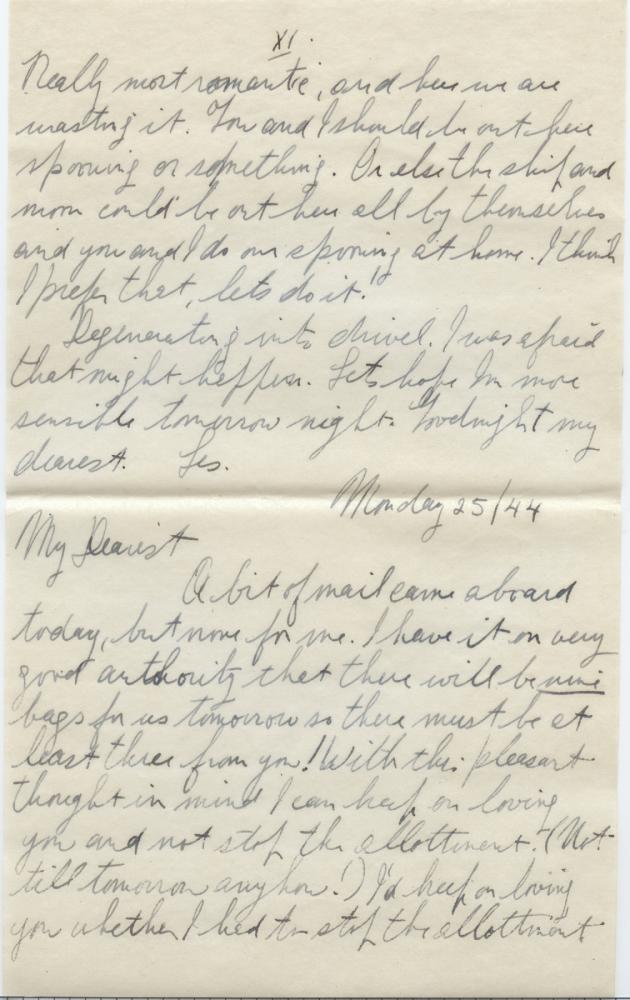 XI.
Really most romantic, and here we are
wasting it. You and I should be out here
spooning or something. Or else the ship and
moon could be out here all by themselves
and you and I do our spooning at home. I think
I prefer that, lets do it!
Degenerating into drivel. I was afraid
that might happen. Lets hope Im more
sensible tomorrow night. Goodnight my
dearest. Les.
Monday 25/44
My Dearest
A bit of mail came aboard
today, but none for me. I have it on very
good authority that there will be nine
bags for us tomorrow so there must be at
least three from you! With this pleasant
thought in mind I can keep on loving
you and not stop the allottment. (Not
till tomorrow anyhow!) I'd keep on loving
you whether I had to stop the allottment